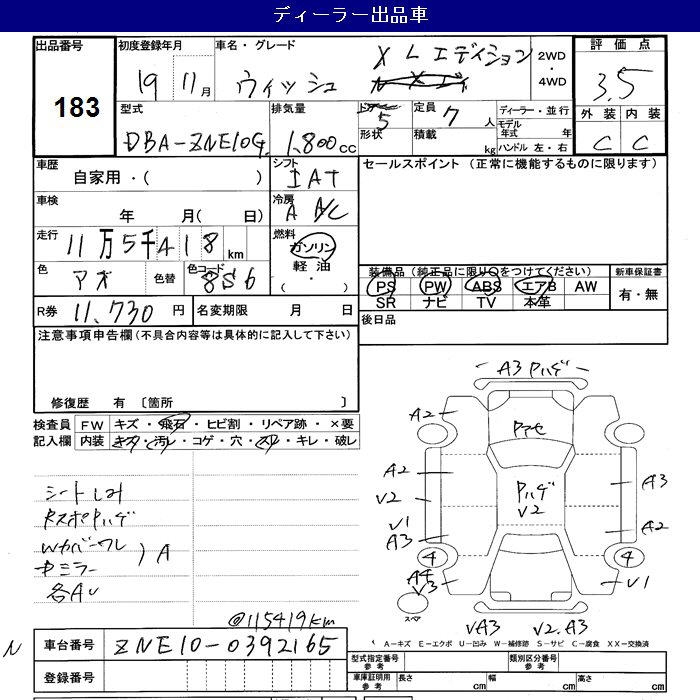 ディーラー出品車
出品番号 183
初度登録年月 19 11月
車名・グレード ウィッシュ XLエディション
2WD・4WD
評価点 3.5
外装 内装
C C
型式 DBA-ZNE10G
排気量 1,800cc
ドア 5 形状
定員 7人 積載 kg
ディーラー・並行
モデル年式 年
ハンドル 左・右
車歴 自家用・( )
シフト IAT
セールスポイント (正常に機能するものに限ります)
車検 年 月( 日)
冷房 A A/C
走行 11万5千418km
燃料 ガソリン・軽油 ( ・ )
色 アオ 色替 色コード 8S6
装備品(純正品に限り○をつけてください) 新車保証書
PS PW ABS エアB AW 有・無
SR ナビ TV 本革
R券 11,730円 名変期限 月 日
後日品
注意事項申告欄(不具合内容等は具体的に記入して下さい)
修復歴 有 〔箇所 〕
検査員記入欄 FW キズ・飛石・ヒビ割・リペア跡・×要
内装 キズ・汚レ・コゲ・穴・スレ・キレ・破レ
A3 Pハゲ
A2
Pアセ
A2
V2
V1
A3
Pハゲ
V2
A3
A2
4
4
A4
V3
V1
スペア
VA3 V2.A3
シートしみ
RスポPハゲ
Wカバーワレ
中ミラー )A
各AU
@115419km
N 車台番号 ZNE10-0392165
登録番号
A-キズ E-エクボ U-凹み W-補修跡 S-サビ C-腐食 XX-交換済
型式指定番号 参考 類別区分番号 参考
車庫証明用 参考 長さ cm 幅 cm 高さ cm